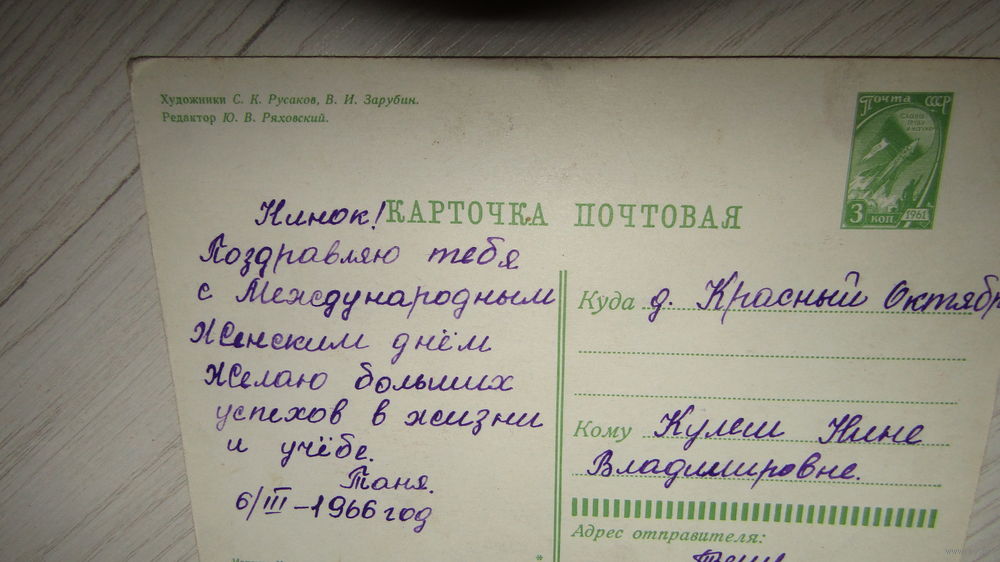 Художники С. К. Русаков, В. И. Зарубин.
Редактор Ю. В. Ряховский.
Почта СССР
3 коп. 1961
КАРТОЧКА ПОЧТОВАЯ
Нинок!
Поздравляю тебя
с Международным
Женским днём
Желаю больших
успехов в жизни
и учёбе.
Таня.
6/III–1966 год
Куда д. Красный Октябр
Кому Кулеш Нине
Владимировне.
Адрес отправителя: